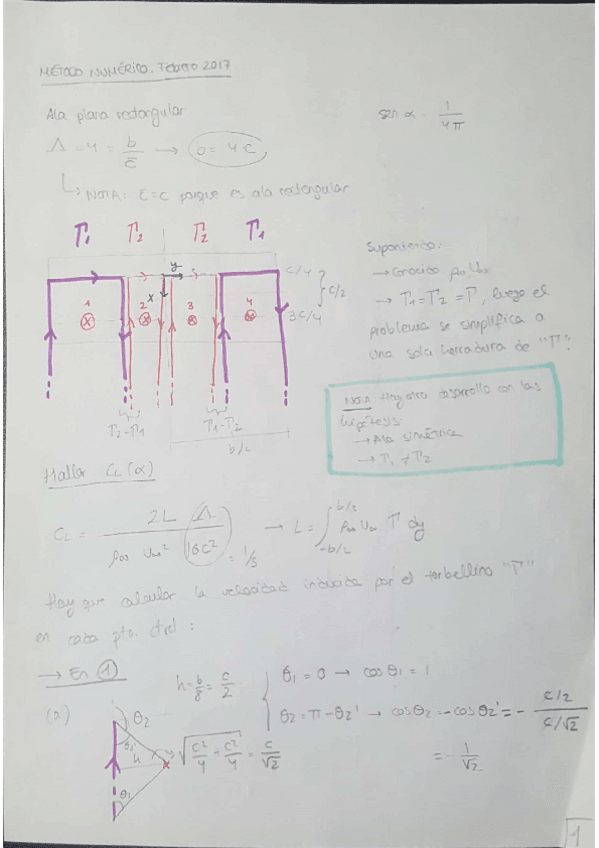 MÉTODO NUMÉRICO. Febrero 2017
Ala plana rectangular
sen α = 1/4π
Λ = 4 = b/c̄ → b = 4c
↳ NOTA: c̄ = c porque es ala rectangular
Γ1 Γ2 Γ2 Γ1
y
x
c/4
c/2
3c/4
1 2 3 4
Γ2-Γ1 Γ1-Γ2
Suponiendo:
→ Conocido ρ∞, U∞
→ Γ1 = Γ2 = Γ, luego el
problema se simplifica a
una sola herradura de "Γ".
NOTA: Hay otro desarrollo con las
hipótesis:
→ Ala simétrica
→ Γ1 ≠ Γ2
Hallar CL(α)
CL = 2L / ρ∞ U∞² Λ/16c² = 1/S → L = ∫_{-b/2}^{b/2} ρ∞ U∞ Γ dy
Hay que calcular la velocidad inducida por el torbellino "Γ"
en cada pto. ctrl:
→ En 1
h = b/8 = c/2
θ1 = 0 → cos θ1 = 1
(a)
θ2
θ2 = π - θ2' → cos θ2 = -cos θ2' = - c/2 / c/√2
θ2'
h
√(c²/4 + c²/4) = c/√2
= - 1/√2
θ1
1